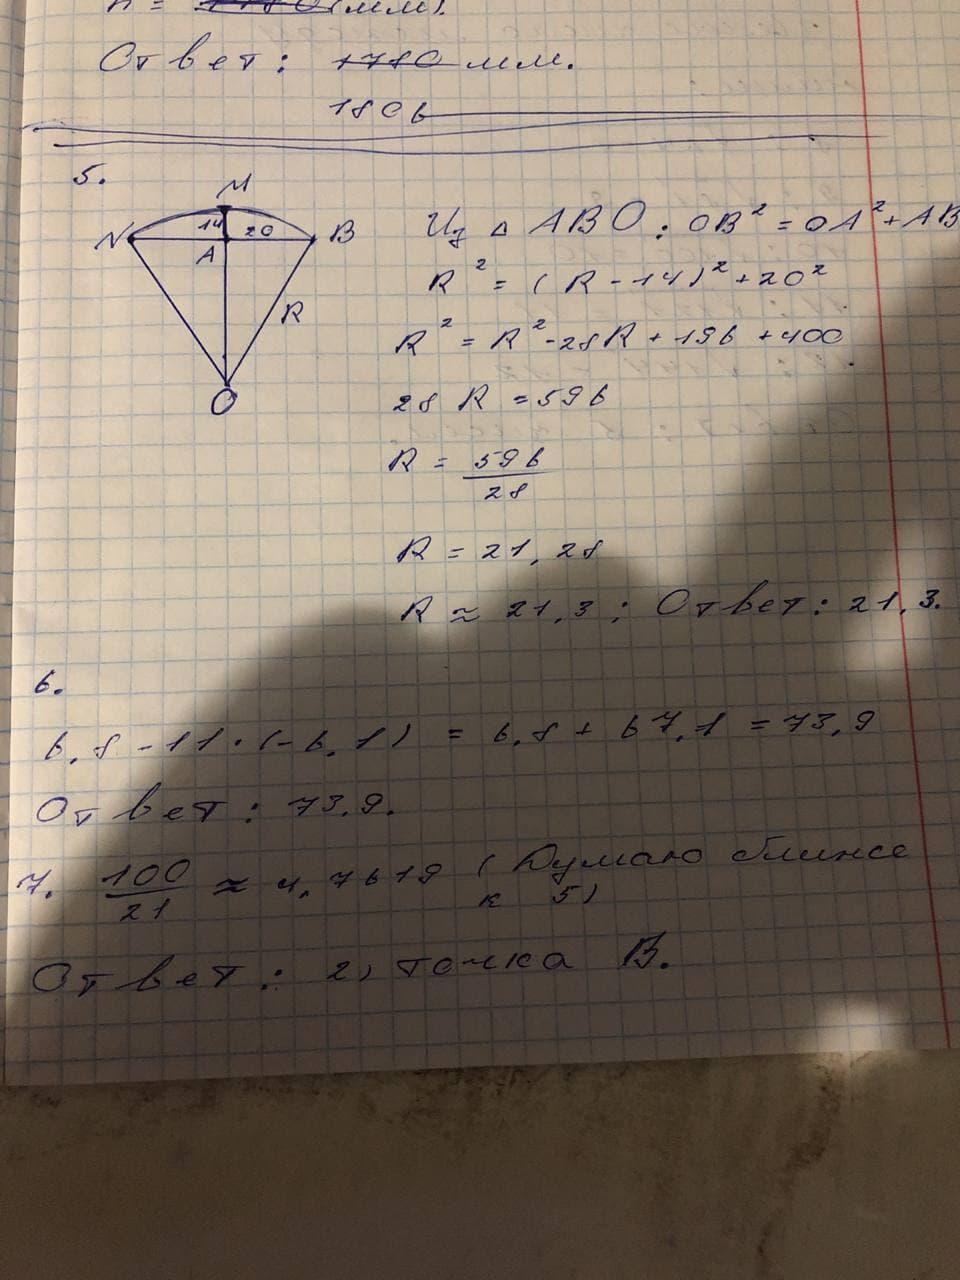 Ответ: 1780 мм.
1806
5.
M
N 14 20 B
A
R
O
Из △ ABO: OB² = OA² + AB
R² = (R - 14)² + 20²
R² = R² - 28R + 196 + 400
28 R = 596
R = 596/28
R = 21,28
R ≈ 21,3; Ответ: 21,3.
6.
6,8 - 11·(-6,1) = 6,8 + 67,1 = 73,9
Ответ: 73,9.
7. 100/21 ≈ 4,7619 (Думаю ближе
к 5)
Ответ: 2) точка B.